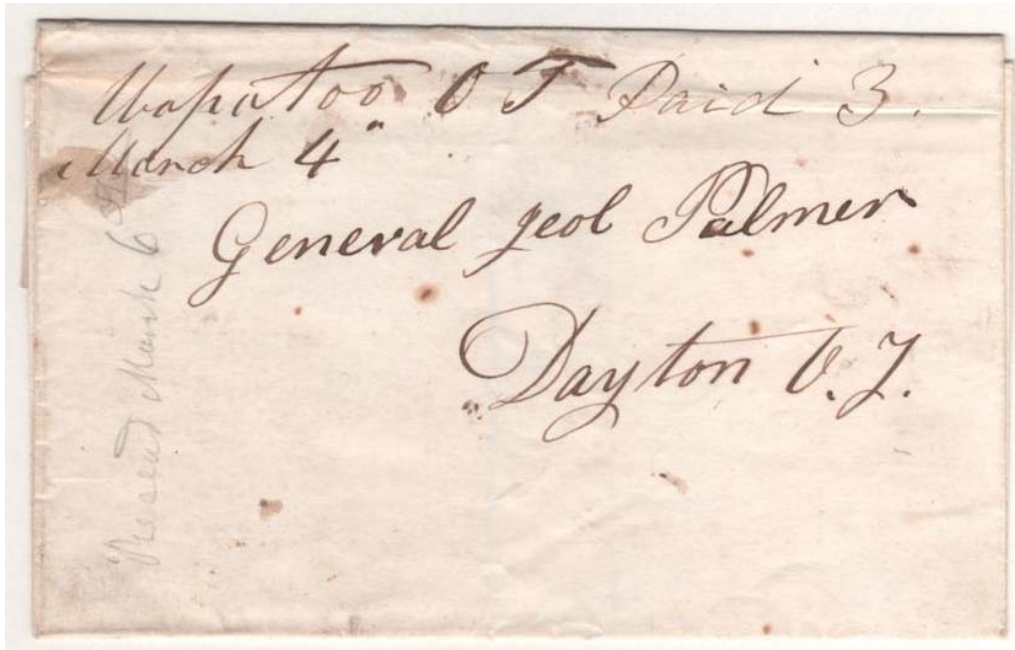 Wapatoo O T Paid 3.
March 4"
General Jeol Palmer
Dayton O.T.
March 6